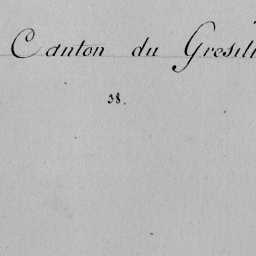 Canton du Gresil
38.